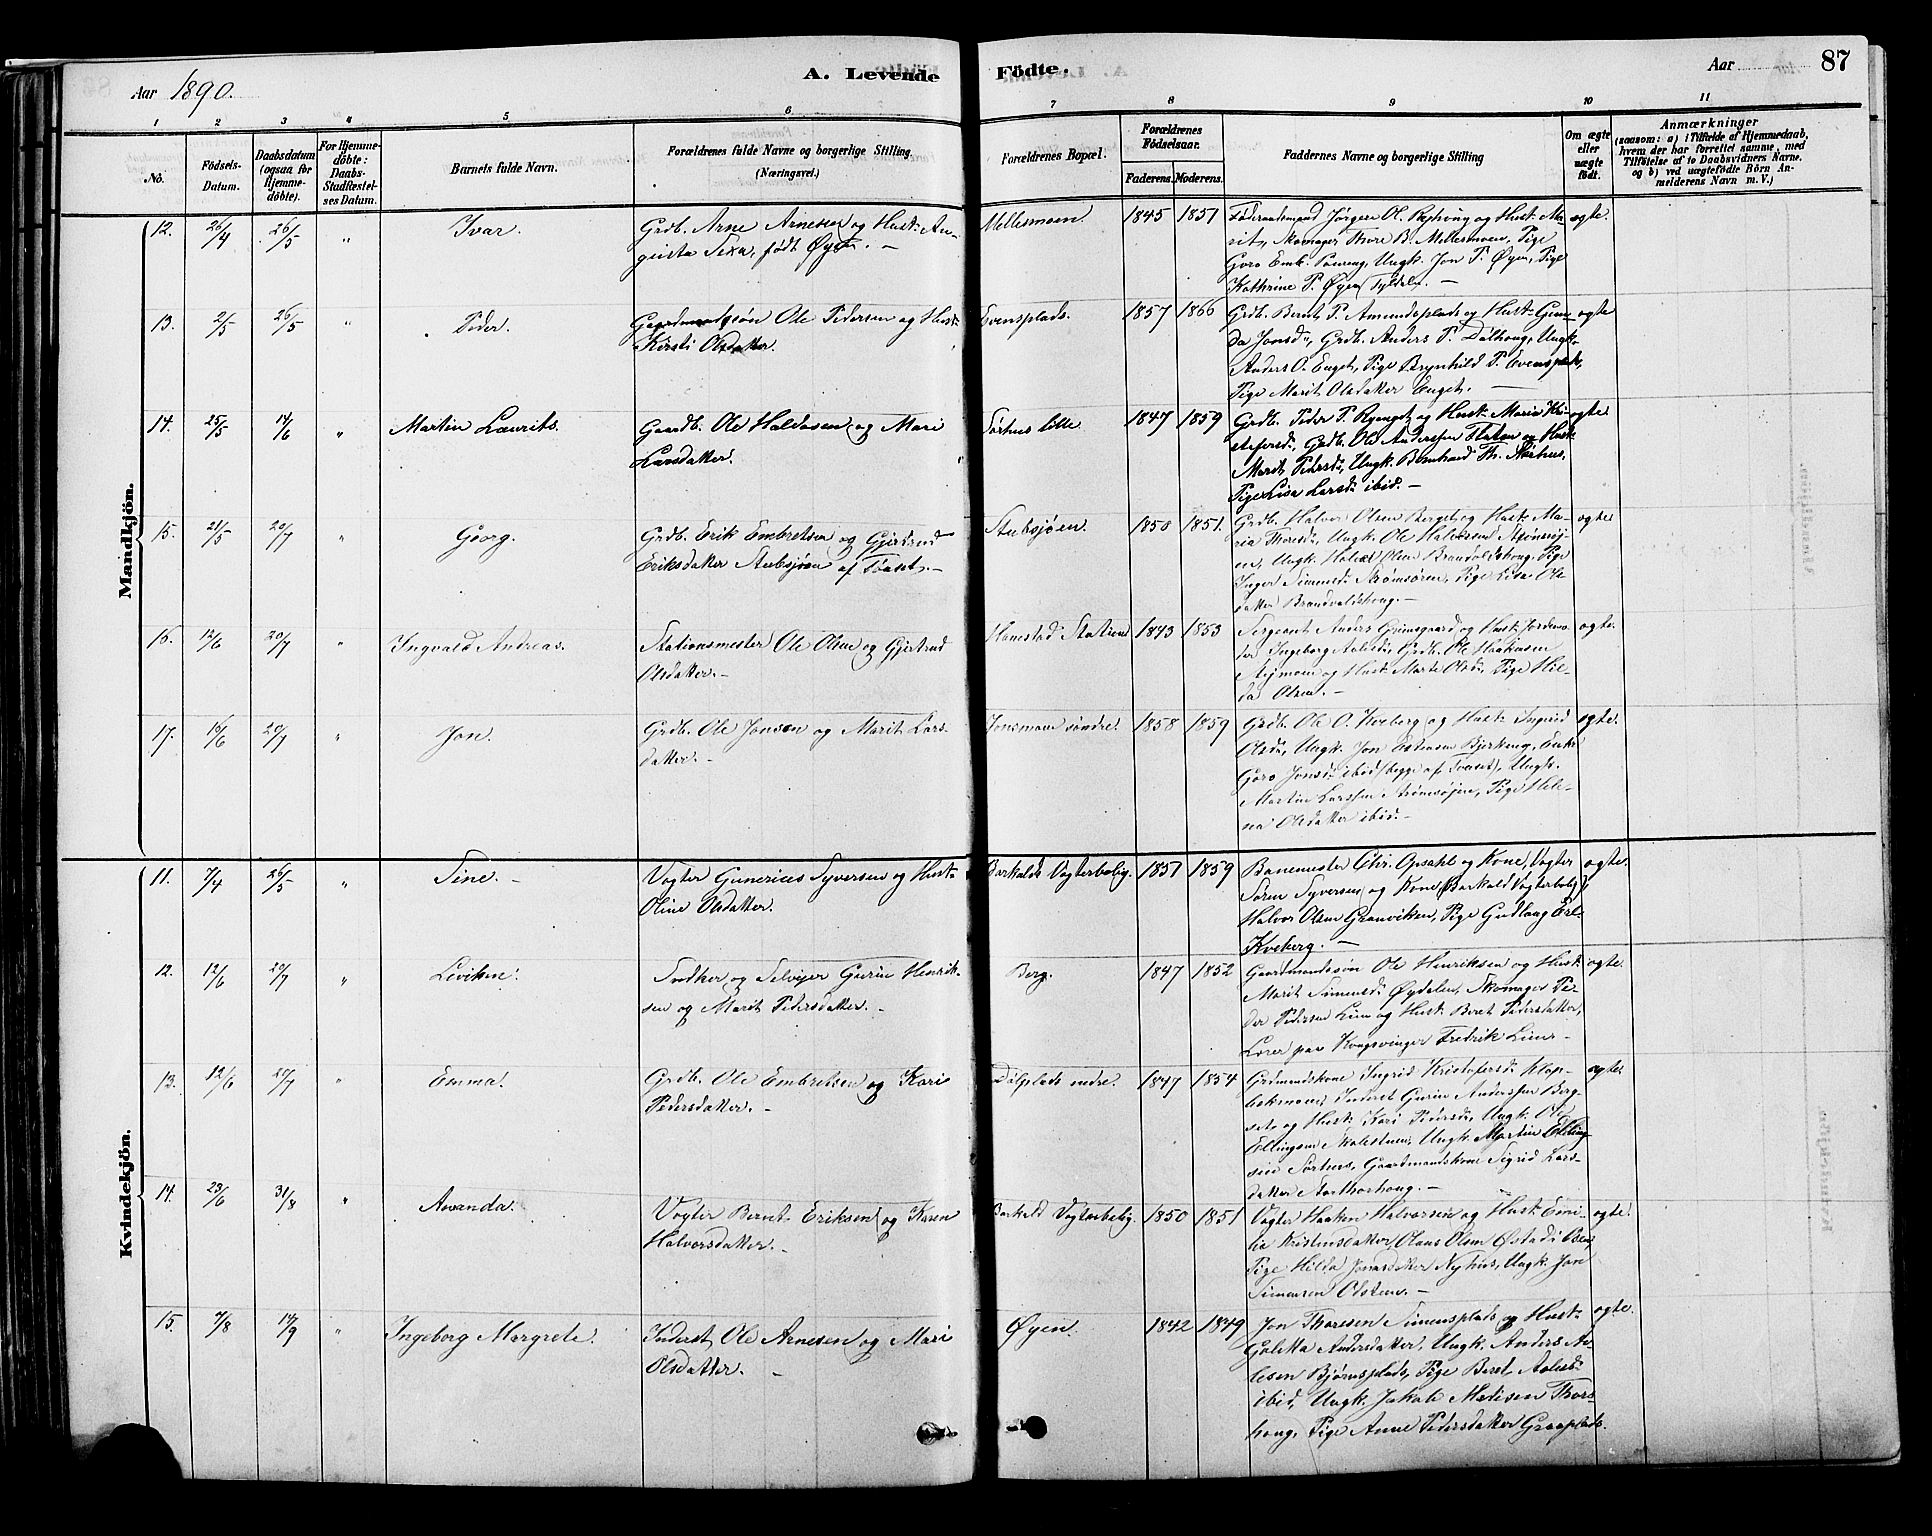 Aar 1890.
A. Levende
Födte.
Aar
87
1
2
3
4
5
6
7
8
9
10
11
No.
Födsels-Datum.
Daabsdatum (ogsaa for Hjemmedöbte).
For Hjemmedöbte: Daabs-Stadfæstelses Datum.
Barnets fulde Navn.
Forældrenes fulde Navne og borgerlige Stilling (Næringsvei.)
Forældrenes Bopæl.
Forældrenes Födselsaar.
Faderens.
Moderens.
Faddernes Navne og borgerlige Stilling
Om ægte eller uægte födt.
Anmærkninger
(saasom: a) i Tilfælde af Hjemmedaab, hvem der har forrettet samme, med Tilföielse af to Daabsvidners Navne, og b) ved uægtefödte Börn Anmelderens Navn m. V.)
Mandkjön.
12. 26/4 26/5 " Ivar. Grdb. Arne Arnesen og Hust. Au-
gusta født Øyen. —
Mellesmoen 1845 1851 Jørgen Ol. og Hust. Ma-
rit, Skomager Thore B. Mellesmoen, Pige
Goro Emb. Ungk. Jon P. Øyen, Pige
Kathrine P. Øyen, Tyldal. —
ægte.
13. 2/5 26/5 " Peder. Gaardmandssøn Ole Pedersen og Hust.
Kirsti Olsdatter.
Evensplads. 1857 1866 Grdb. Bernt P. Amundsplads og Hust. Gun-
da Jonsd., Grdb. Anders P. Dalhoug, Ungk.
Anders O. Enget, Pige Brynhild P. Evensplads,
Pige Marit Olsdatter Enget. —
ægte
14. 25/5 14/6 " Martin Laurits. Gaardb. Ole Haldosen og Mari
Larsdatter.
Sørhus lille 1847 1859 Grdb. Peder P. og Hust. Maria Kri-
stofersd., Grdb. Ole Anderssen og Hust.
Marit Pedersd., Ungk. Bernhard Th. Sørhus,
Pige Lisa Larsd. ibid. —
ægte.
15. 21/5 20/7 " Georg. Grdb. Erik Embretsen og Gjertrud
Eriksdatter Stubsjøen af Tønset. —
Stubsjøen. 1850 1851. Grdb. Halvor Olsen Berget og Hust. Ma-
ria Thoresd., Ungk. Ole Halvorsen
Ungk. Olsen Brandvoldshoug, Pige
Inger Simensd. Strømsøien, Pige Lisa Ols-
datter Brandvoldshoug. —
ægte
16. 12/6 20/7 " Ingvald Andreas. Stationsmester Ole Olsen og Gjertrud
Olsdatter. —
Hanestad Station 1843 1853 Sergeant Anders Grimsgaard og Hust. Jordemo-
der Ingeborg Grdb. Ole Haakonsen
og Hust. Marte Olsd., Pige Hil-
da Olsen. —
ægte.
17. 16/6 20/7 " Jon. Grdb. Ole Jonsen og Marit Lars-
datter. —
Jonsmoen søndre. 1858 1859 Grdb. Ole O. Kveberg og Hust. Ingrid
Olsd., Ungk. Jon Estensen Bjerkeng, Enke
Goro Jonsd. ibid (begge af Tønset), Ungk.
Martin Larssen Strømsøien, Pige Hele-
na Olsdatter ibid. —
ægte
Kvindekjön.
11. 7/4 26/5 " Sine. — Vogter Gunerius Syversen og Hust.
Oline Olsdatter.
Barkalds Vogterbolig. 1857 1859 Banemester Chr. Opsahl og Kone, Vogter
Søren Syversen og Kone (Barkald Vogterbolig),
Halvor Olsen Granviken, Pige Gudlaug
Kveberg. —
ægte.
12. 12/6 20/7 " Snedker og Selveier Gurin Henrik-
sen og Marit Pedersdatter. —
Berg. 1847 1852 Gaardmandssøn Ole Henriksen og Hust.
Marit Simensd. Øydalen, Skomager Pe-
der Pedersen Lien og Hust. Beret Pedersdatter,
Lærer paa Kongsvinger Fredrik Lien. —
ægte.
13. 12/6 20/7 " Emma. Grdb. Ole Embretsen og Kari
Pedersdatter. —
Dølplads nedre. 1847 1854 Grdmandskone Ingrid Kristofersd. Klop-
bakmoen, Inderst Gurin Anderssen Berg-
sete og Hust. Kari Pedersd., Ungk. Ole
Ellingsen Ungk. Martin Elling-
sen Sørhus, Gaardmandskone Sigrid Lars-
datter —
ægte.
14. 23/6 31/8 " Amanda. Vogter Bernt Eriksen og Karen
Halvorsdatter. —
Barkald Vogterbolig. 1850 1851 Vogter Haaken Halvorsen og Hust. Emi-
lie Kristinsdatter, Olaus Olsen
Pige Hilda Jonasdatter Nyhus, Ungk. Jon
Simensen —
ægte.
15. 7/8 14/9 " Ingeborg Margrete. Inderst Ole Arnesen og Mari
Olsdatter. —
Øyen. 1842 1849 Jon Thoresen Simensplads og Hust.
Goletta Andersdatter, Ungk. Anders
Bjørnsplads, Pige Beret
ibid, Ungk. Jakob Madisen Thors-
houg, Pige Anne Pedersdatter Graaplads.
ægte.